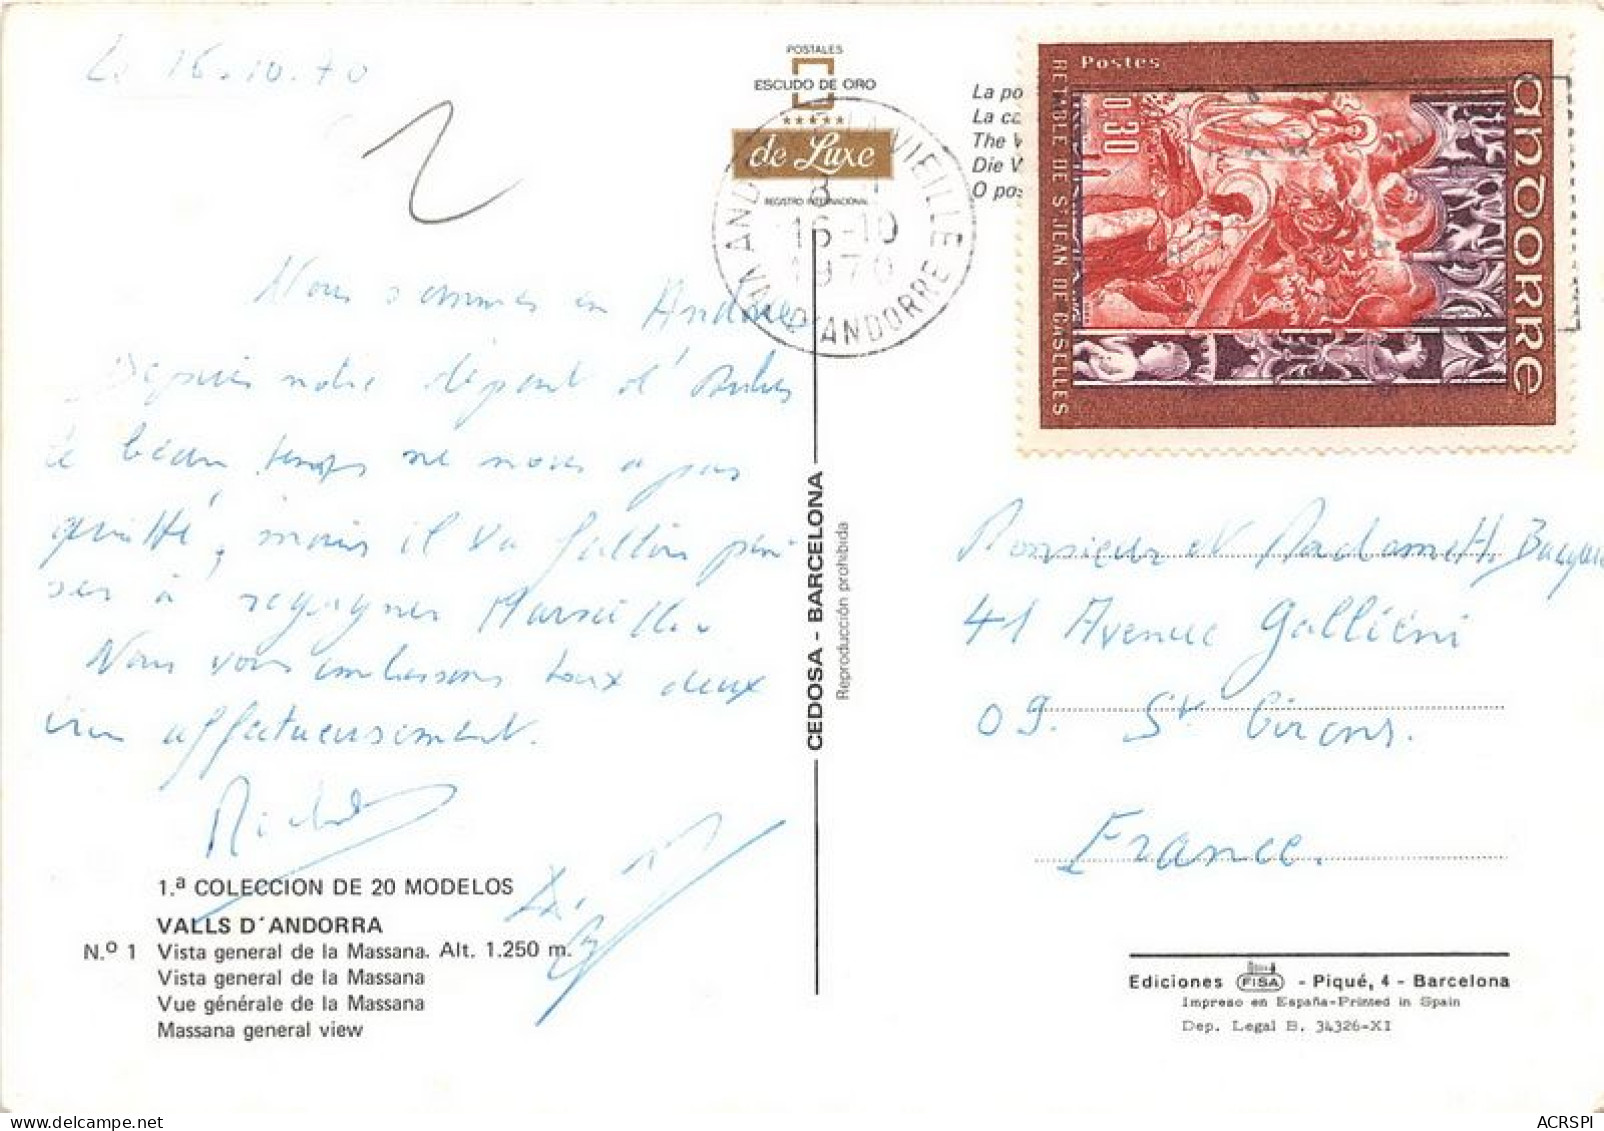 Le 16.10.70
POSTALES
ESCUDO DE ORO
de Luxe
REGISTRO INTERNACIONAL
La po
La ca
The V
Die V
O pos
LA VIEILLE
16-10
1970
VAL D'ANDORRE
Postes
0.30
RETABLE DE St JEAN DE CASELLES
andorre
Nous sommes en Andorre
Depuis notre départ d'
le beau temps ne nous a pas
quitté, mais il va falloir pen
ser à regagner Marseille.
Nous vous embrassons tous deux
bien affectueusement.
Michel
CEDOSA - BARCELONA
Reproducción prohibida
Monsieur et Madame H.
41 Avenue Galliéni
09. St Girons.
France.
1.ª COLECCION DE 20 MODELOS
VALLS D´ANDORRA
N.º 1 Vista general de la Massana. Alt. 1.250 m.
Vista general de la Massana
Vue générale de la Massana
Massana general view
Ediciones FISA - Piqué, 4 - Barcelona
Impreso en España-Printed in Spain
Dep. Legal B. 34326-XI
ACRSPI